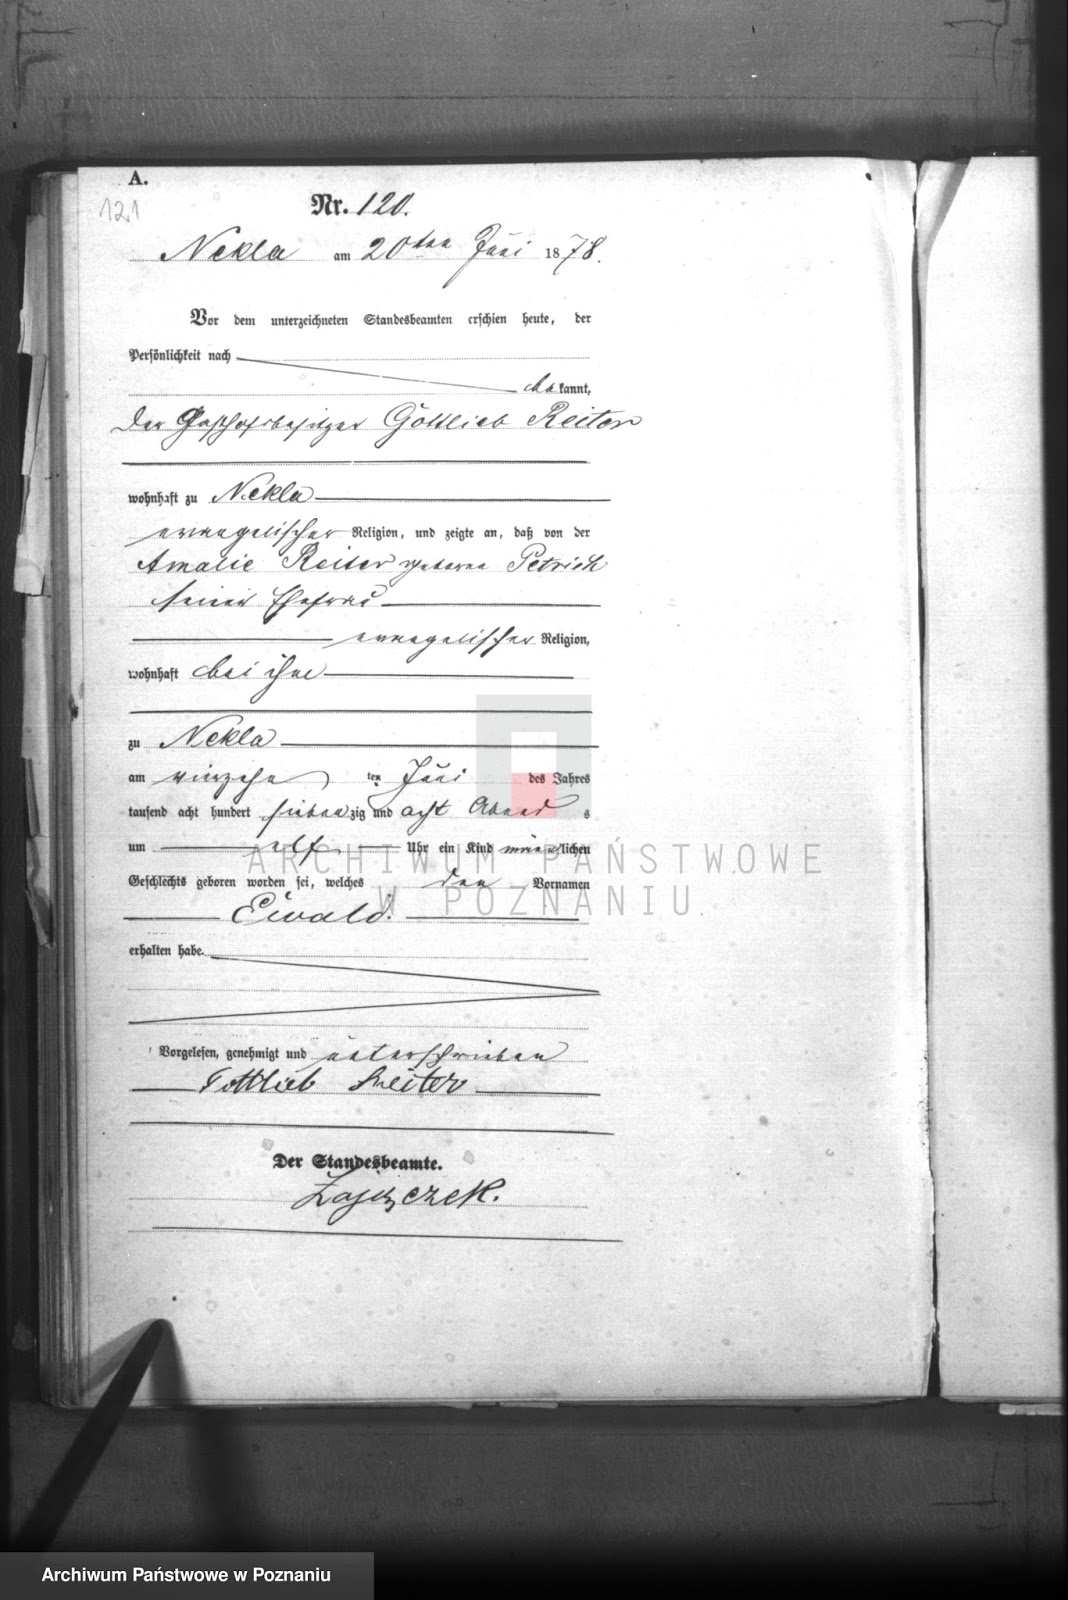 A.
121
Nr. 120.
Nekla am 20ten Juni 1878.
Vor dem unterzeichneten Standesbeamten erschien heute, der
Persönlichkeit nach
bekannt,
der Gasthofsbesitzer Gottlieb Reiter
wohnhaft zu Nekla
evangelischer Religion, und zeigte an, daß von der
Amalie Reiter geborene Petrich
seiner Ehefrau
evangelischer Religion,
wohnhaft bei ihm
zu Nekla
am vierzehn ten Juni des Jahres
tausend acht hundert siebenzig und acht Abends
um elf Uhr ein Kind männlichen
Geschlechts geboren worden sei, welches den Vornamen
Ewald.
erhalten habe.
Vorgelesen, genehmigt und unterschrieben
Gottlieb Reiter
Der Standesbeamte.
ARCHIWUM PAŃSTWOWE
W POZNANIU
Archiwum Państwowe w Poznaniu